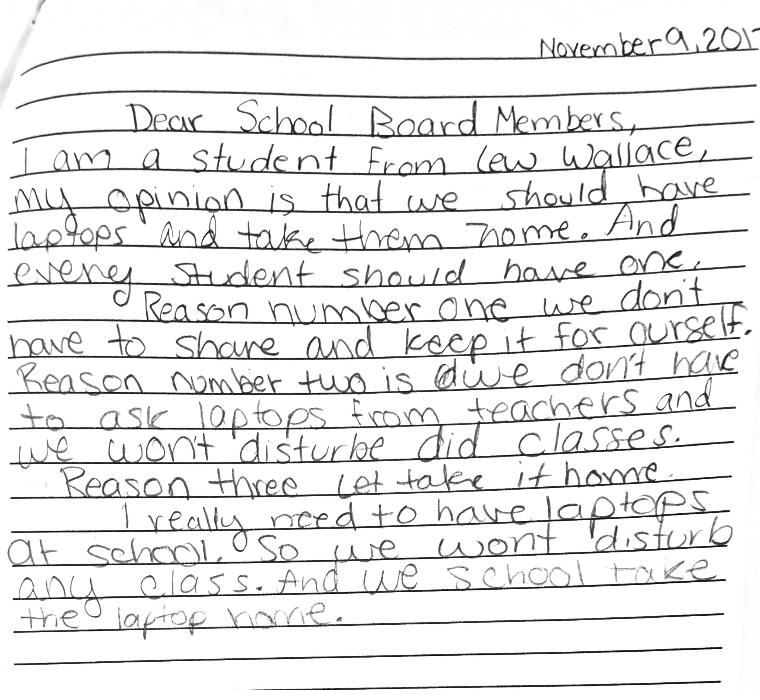 November 9, 201
Dear School Board Members,
I am a student from Lew Wallace,
my opinion is that we should have
laptops and take them home. And
everey student should have one.
Reason number one we don't
have to share and keep it for ourself.
Reason number two is we don't have
to ask laptops from teachers and
we won't disturbe did classes.
Reason three Let take it home.
I really need to have laptops
at school. So we wont disturb
any class. And we school take
the laptop home.